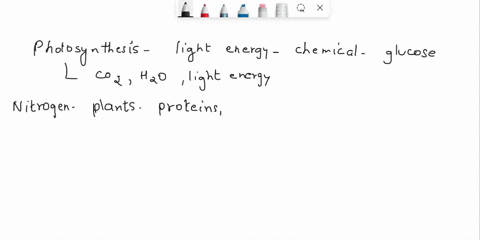 Photosynthesis - light energy - chemical - glucose
CO2, H2O, light energy
Nitrogen - plants - proteins,